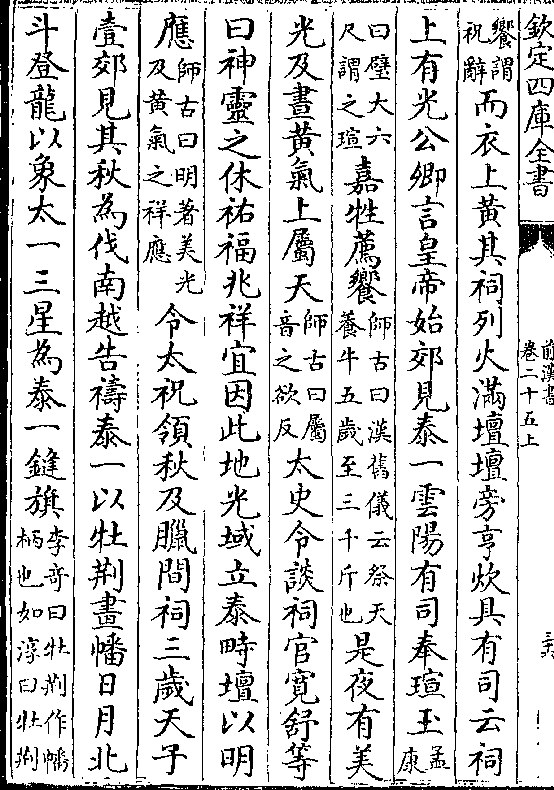 欽定四庫全書
前漢書
卷二十五上
饗謂祝辭而衣上黃其祠列火滿壇壇旁亨炊具有司云祠
上有光公卿言皇帝始郊見泰一雲陽有司奉瑄玉孟康
曰璧大六尺謂之瑄嘉牲薦饗師古曰漢舊儀云祭天養牛五歲至三千斤也是夜有美
光及晝黃氣上屬天師古曰屬音之欲反太史令談祠官寬舒等
曰神靈之休祐福兆祥宜因此地光域立泰畤壇以明
應師古曰明著美光及黃氣之祥應令太祝領秋及臘間祠三歲天子
壹郊見其秋為伐南越告禱泰一以牡荆畫幡日月北
斗登龍以象太一三星為泰一鏠旗李奇曰牡荆作幡柄也如淳曰牡荆